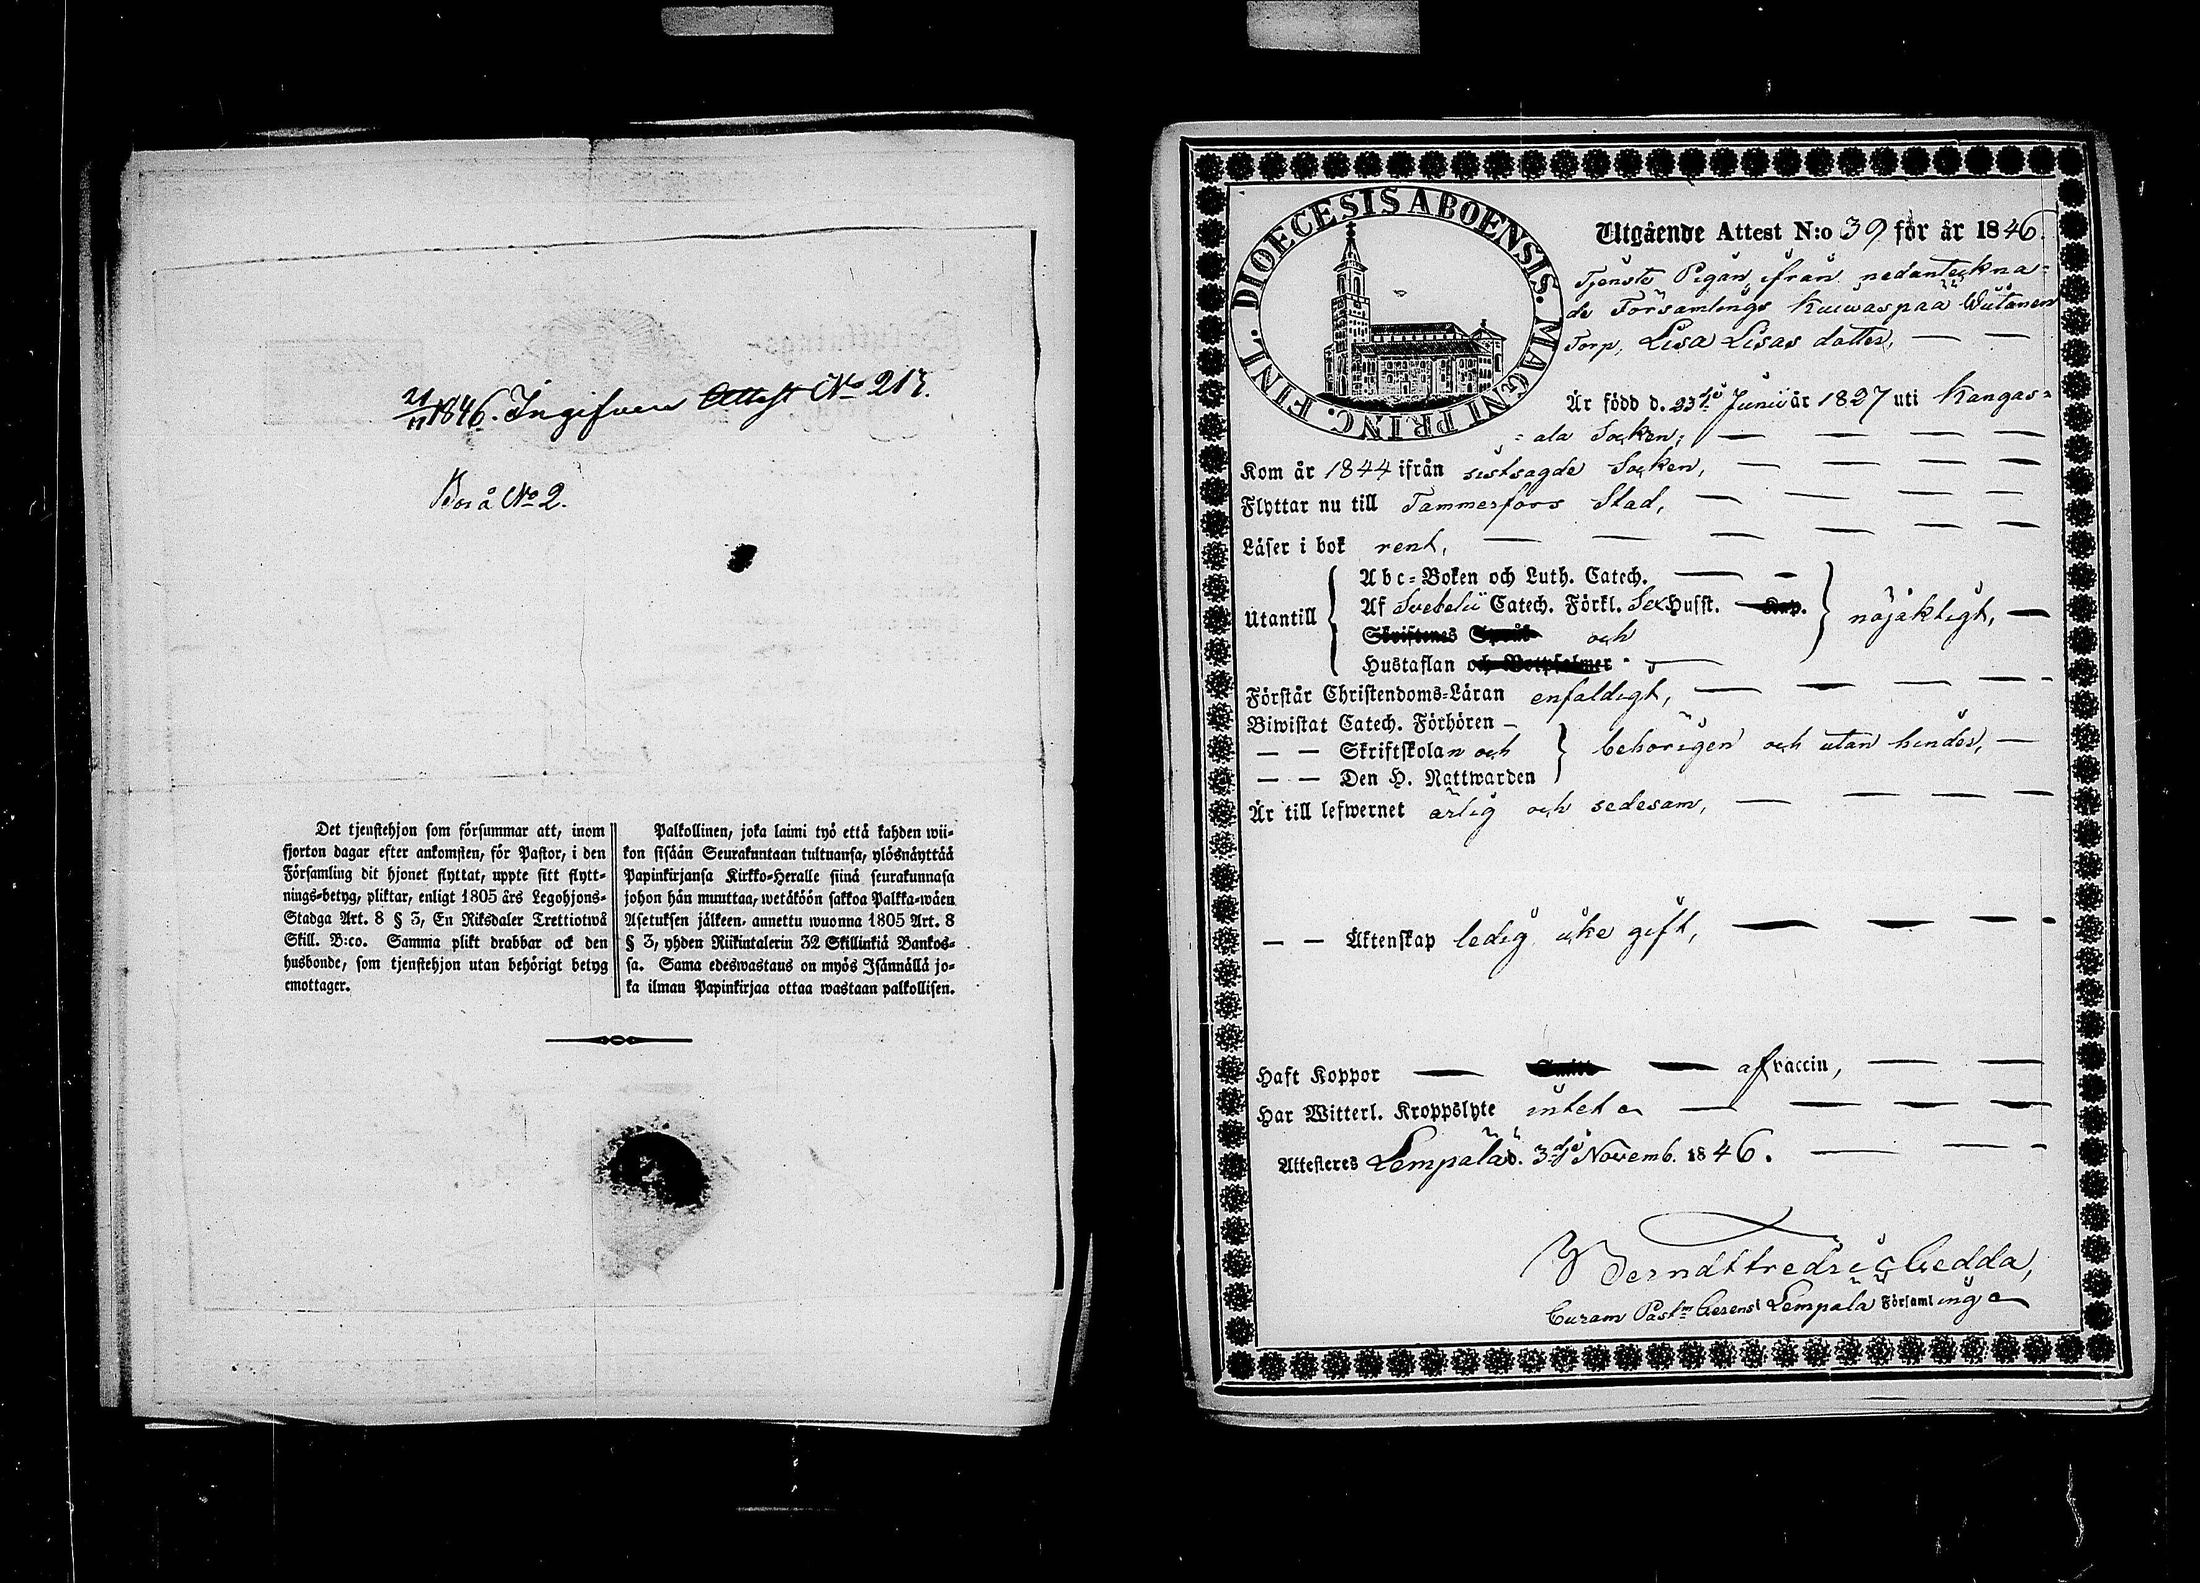 21/11 1846. Ingifven Attest No 217.
Bor å No 2.
Det tjenstehjon som försummar att, inom
fjorton dagar efter ankomsten, för Pastor, i den
Församling dit hjonet flyttat, uppte sitt flytt-
nings-betyg, pliktar, enligt 1805 års Legohjons-
Stadga Art. 8 § 3, En Riksdaler Trettiotwå
Skill. B:co. Samma plikt drabbar ock den
husbonde, som tjenstehjon utan behörigt betyg
emottager.
Palkollinen, joka laimi lyö että kahden wii-
kon sisään Seurakuntaan tultuansa, ylösnäyttää
Papinkirjansa Kirkko-Heralle siinä seurakunnasa
johon hän muuttaa, wetäköön sakkoa Palkka-wäen
Asetuksen jälkeen, annettu wuonna 1805 Art. 8
§ 3, yhden Riikintalerin 32 Skillinkiä Bankos-
sa. Sama edeswastaus on myös Isännällä jo-
ka ilman Papinkirjaa ottaa wastaan palkollisen.
DIOECESIS ABOENSIS. MAGNI PRINC. FINL.
Utgående Attest N:o 39 för år 1846.
Tjenste Pigan, ifrån nedanteckna-
de Församlings Kuiwaspaa Wütanen
Torp, Lisa Lisas dotter,
Är född d. 23dje Junii år 1827 uti Kangas-
ala Socken;
Kom år 1844 ifrån sistsagde Socken,
Flyttar nu till Tammerfors Stad,
Läser i bok rent,
Utantill
Abc-Boken och Luth. Catech.
Af Svebelii Catech. Förkl. Sex Husst. Kap.
Skriftenes Språk och
Hustaflan och Botpsalmer
nöjaktigt,
Förstår Christendoms-Läran enfaldigt,
Biwistat Catech. Förhören
— — Skriftskolan och
— — Den H. Nattwarden
behörigen och utan hinder,
Är till lefwernet ärlig och sedesam,
— — Äktenskap ledig icke gift,
Haft Koppor af vaccin,
Har Witterl. Kroppslyte intet
Attesteres Lempälä d. 3dje Novemb. 1846.
Berndt Fredric Gedda,
Curam Past:m Gerens i Lempälä Församling